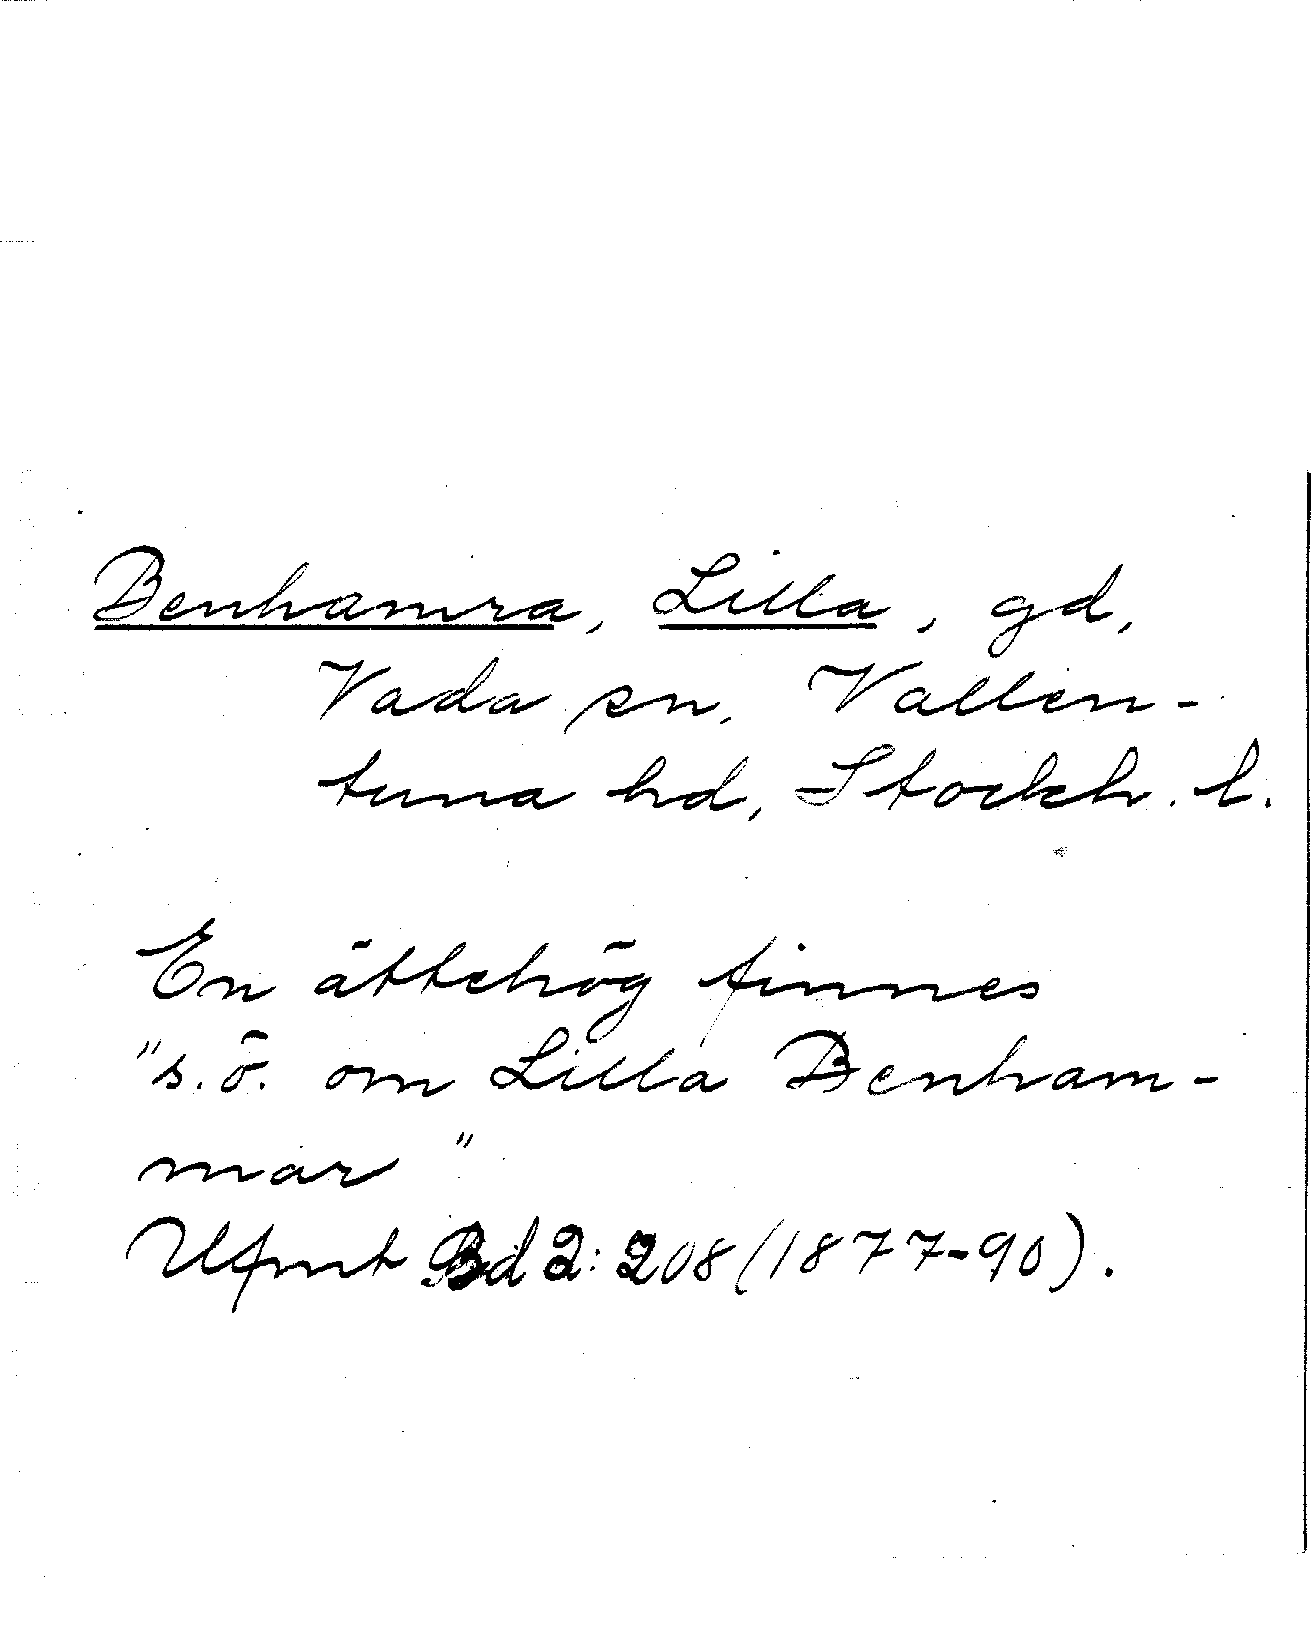 Benhamra, Lilla, gd,
Vada sn, Vallen-
tuna hd, Stockh. l.
En ättehög finnes
"s.ö. om Lilla Benham-
mar"
Ufmt Bd 2: 208 (1877-90).